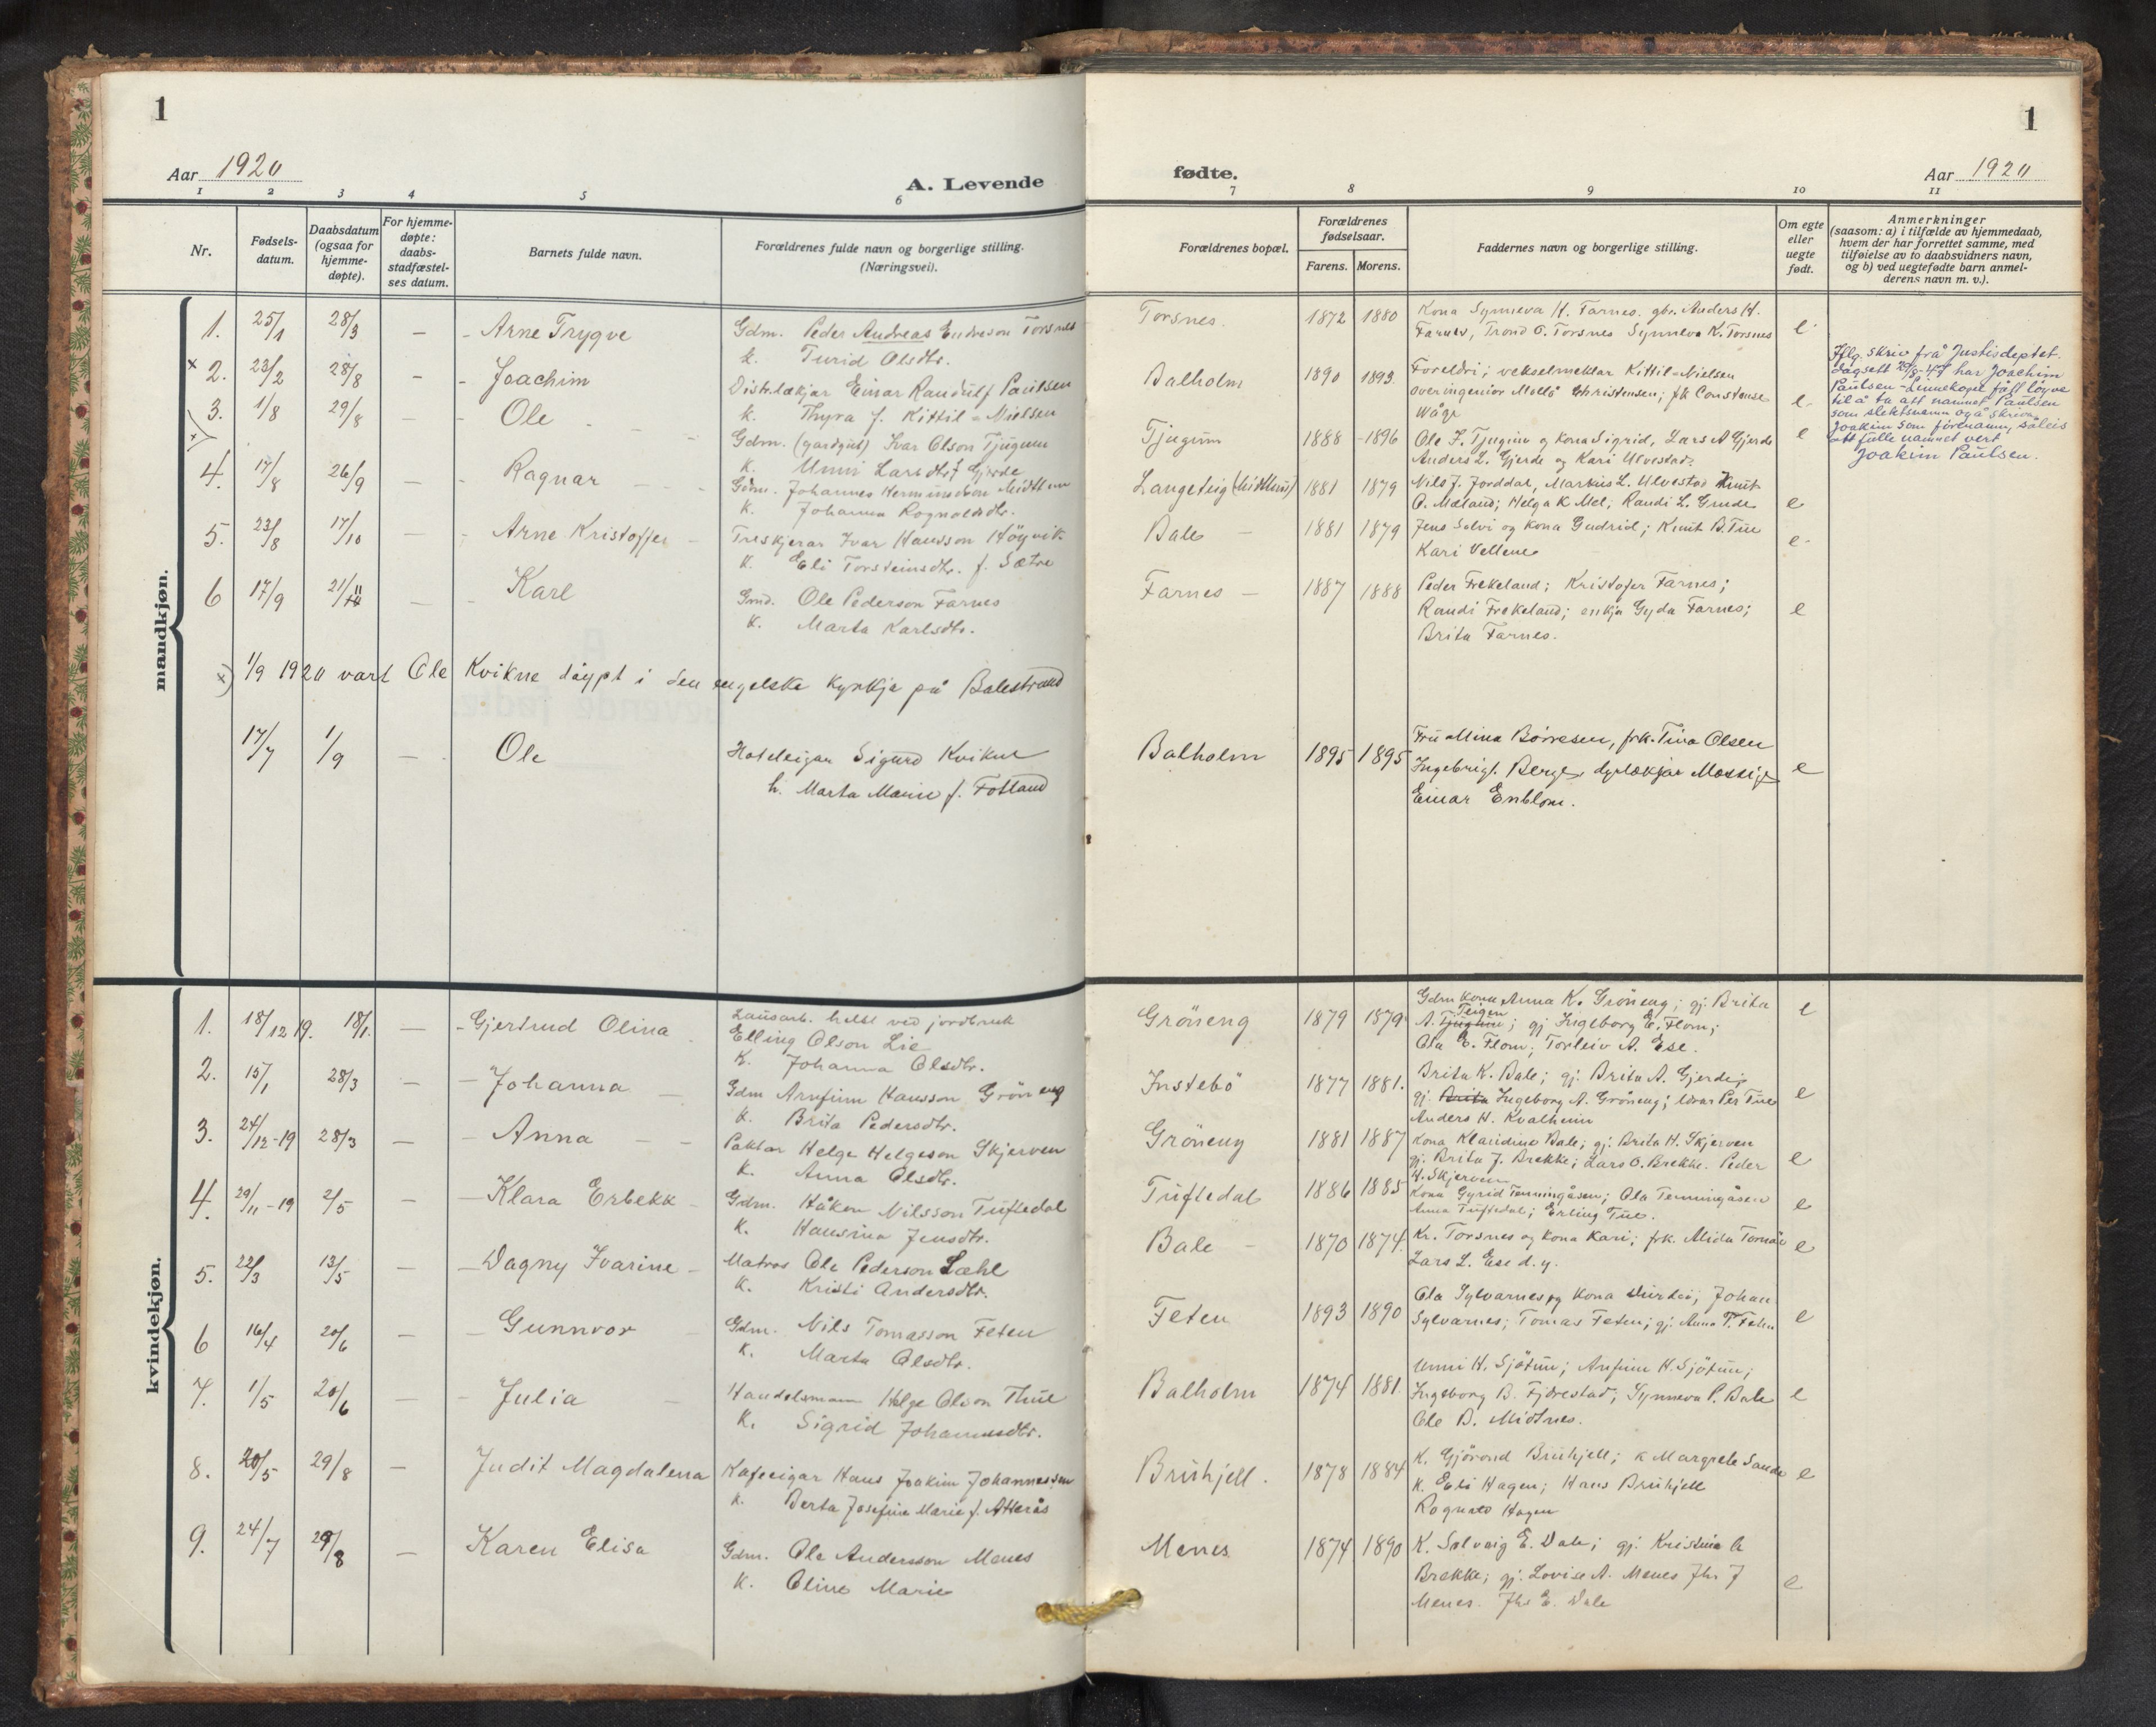 1
Aar 1920
A. Levende
1 2 3 4 5 6
Nr.
Fødsels-
datum.
Daabsdatum
(ogsaa for
hjemme-
døpte).
For hjemme-
døpte:
daabs-
stadfæstel-
ses datum.
Barnets fulde navn.
Forældrenes fulde navn og borgerlige stilling.
(Næringsvei).
mandkjøn.
1. 25/1 28/3 — - Arne Trygve
Gdm. Peder Andreas Endreson Torsnes
k. Turid Olsdtr.
x 2. 23/2 28/8 - - Joachim
Distr.lækjar Einar Randulf Paulsen
k. Thyra f. Kittil-Nielsen
3. 1/8 29/8 — Ole
Gdm. (gardgut) Ivar Olson Tjugum
K. Unni Larsdtr f Gjerde
4. 17/8 26/9 — Ragnar
Gdm. Johannes Hermundson Midttun
K. Johanna Rognaldsdtr.
5. 23/8 17/10 — - Arne Kristoffer -
Treskjerar Ivar Hansson Höyvik
K. Eli Torsteinsdtr. f. Sætre
6 17/9 21/11 — - Karl
Gmd. Ole Pederson Farnes
K. Marta Karlsdtr.
x) 1/9 1920 vart Ole Kvikne döypt i den engelske kyrkja på Balestrand
17/7 1/9 — Ole
Hoteleigar Sigurd Kvikne
h. Marta Marie f. Fotland
kvindekjøn.
1. 18/12 19. 18/1. — - Gjertrud Olina
Lausarb. helst ved jordbruk
Elling Olson Lie
K. Johanna Olsdtr.
2. 15/1 28/3 — - Johanna —
Gdm Arnfinn Hansson Gröneng
K. Brita Pedersdtr.
3. 24/12-19 28/3 — - Anna - -
Paktar Helge Helgeson Skjerven
K. Anna Olsdtr.
4. 29/11-19 2/5 - - Klara Erbekk -
Gdm. Håkon Nilsson Tuftedal
K. Hansina Jensdtr.
5. 22/3 13/5 — - Dagny Ivarine -
Matros Ole Pederson Læhl
K. Kristi Andersdtr.
6 16/4 20/6 — - Gunnvor
Gdm. Nils Tomasson Feten
K. Marta Olsdtr.
7. 1/5 20/6 — - Julia —
Handelsmann Helge Olson Thue
K. Sigrid Johannesdtr.
8. 20/5 29/8 — Judit Magdalena
Kafeeigar Hans Joakim Johannessen
K. Berta Josefine Marie f. Atterås
9. 24/7 29/8 — Karen Elisa
Gdm. Ole Andersson Menes
K. Oline Marie
1
fødte.
Aar 1920
7 8 9 10 11
Forældrenes bopæl.
Forældrenes
fødselsaar.
Farens. Morens.
Faddernes navn og borgerlige stilling.
Om egte
eller
uegte
født.
Anmerkninger
(saasom: a) i tilfælde av hjemmedaab,
hvem der har forrettet samme, med
tilføielse av to daabsvidners navn,
og b) ved uegtefødte barn anmel-
derens navn m. v.).
Torsnes. 1872 1880 Kona Synneva H. Farnes. gbr. Anders H.
Farnes, Trond O. Torsnes Synneva K. Torsnes e
Balholm 1890 1893. Foreldri; vekselmeklar Kittil-Nielsen
overingeniör Christensen; frk Constanse e
Wåge
Iflg. skriv frå Justisdeptet.
dagsett har Joachim
Paulsen - fått löyve
til å ta att namnet Paulsen
som slektsnamn og å skriva
Joakim som fornamn, såleis
att fulle namnet vert
Joakim Paulsen.
Tjugum 1888 -1896 Ole I. Tjugum og kona Sigrid, Lars A Gjerde e
Anders L. Gjerde og Kari Ulvestad.
Langeteig (Midttun) 1881 1879 Nils J. Jorddal, Markus L. Ulvestad Knut
O. Mæland; Helga K Mel; Randi L. Grude e
Bale — 1881 1879 Jens Solvi og kona Gudrid; Knut B. Tue
Kari Vellene e
Farnes — 1887 1888 Peder Frekeland; Kristofer Farnes;
Randi Frekeland; enkja Gyda Farnes; e
Brita Farnes.
Balholm 1895 1895 Fru Mina Börresen, frk. Tina Olsen
Ingebrigt Berge, dyrlækjar Mossige e
Einar Enblom.
Gröneng 1879 1879 Gdm kona Anna K. Gröneng; gj. Brita e
A. Tjugum Teigen; gj Ingeborg E. Flom;
Ola E. Flom; Torleiv A. Ese.
Instebö 1877 1881. Brita K. Bale; gj. Brita A. Gjerde;
gj. Brita Ingeborg A. Gröneng; lærar Per Tue e
Anders H. Kvalheim
Gröneng 1881 1887 Kona Klaudine Bale; gj. Brita H. Skjerven
gj. Brita J. Brekke; Lars O. Brekke. Peder e
H. Skjerven
Tuftedal 1886 1885 Kona Gyrid Tenningåsen; Ola Tenningåsen
Anna Tuftedal; Erling Tue. e
Bale — 1870 1874. Kr. Torsnes og kona Kari; frk. Alida e
Lars L. Ese d.y.
Feten 1893 1890 Ola Sylvarnes og kona; Johan
Sylvarnes; Tomas Feten; gj. Anna T. Feten e
Balholm 1874 1881. Unni H. Sjötun; Arnfinn H. Sjötun;
Ingeborg B. Fjærestad; Synneva P. Bale e
Ole B. Midtnes.
Bruhjell. 1878 1884 K. Gjörond Bruhjell; k Margrete Sande e
K. Eli Hagen; Hans Bruhjell
Rognald Hagen
Menes 1874 1890 K. Solveig E. Dale; gj. Kristina A
Brekke; gj. Lovise A. Menes Jhs J e
Menes. Jhs E. Dale